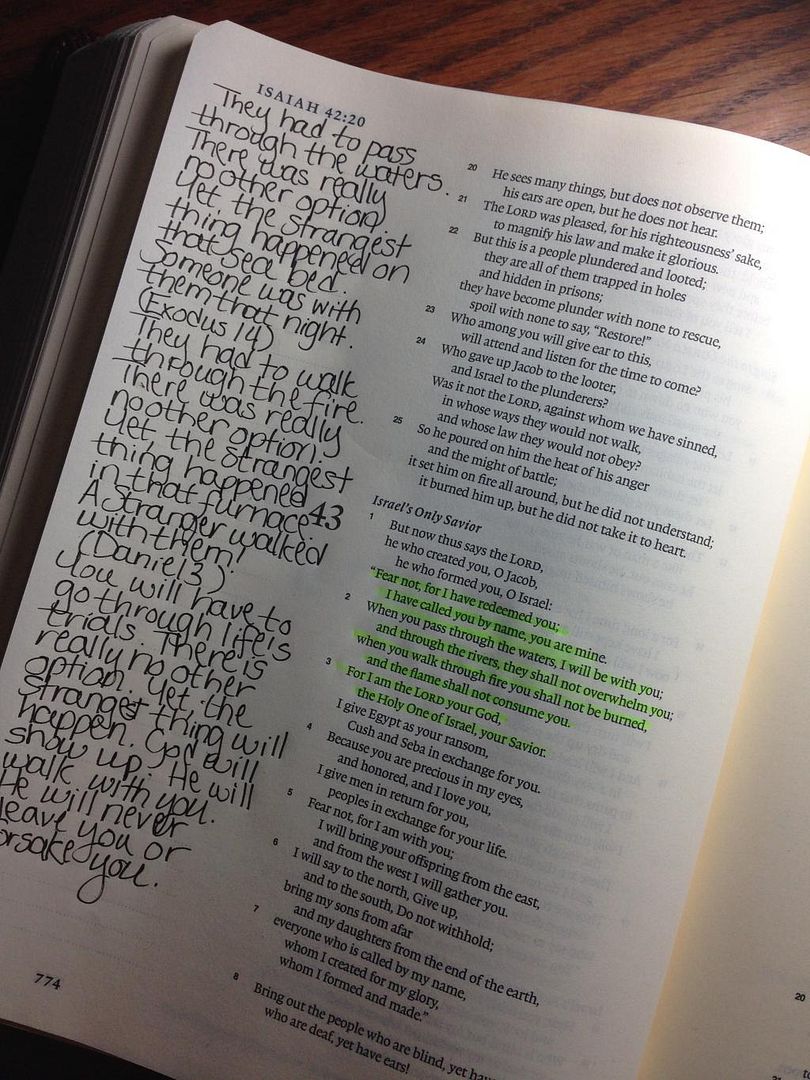 ISAIAH 42:20
They had to pass
through the waters.
There was really
no other option.
Yet the strangest
thing happened on
that sea bed.
Someone was with
them that night.
(Exodus 14)
They had to walk
through the fire.
There was really
no other option.
Yet, the strangest
thing happened
in that furnace.
A Stranger walked
with them!
(Daniel 3)
You will have to
go through life's
trials. There is
really no other
option. Yet the
strangest thing will
happen. God will
show up. He will
walk with you.
He will never
leave you or
forsake
you.
774
20 He sees many things, but does not observe them;
his ears are open, but he does not hear.
21 The LORD was pleased, for his righteousness' sake,
to magnify his law and make it glorious.
22 But this is a people plundered and looted;
they are all of them trapped in holes
and hidden in prisons;
they have become plunder with none to rescue,
spoil with none to say, "Restore!"
23 Who among you will give ear to this,
will attend and listen for the time to come?
24 Who gave up Jacob to the looter,
and Israel to the plunderers?
Was it not the LORD, against whom we have sinned,
in whose ways they would not walk,
and whose law they would not obey?
25 So he poured on him the heat of his anger
and the might of battle;
it set him on fire all around, but he did not understand;
it burned him up, but he did not take it to heart.
Israel's Only Savior
43
1 But now thus says the LORD,
he who created you, O Jacob,
he who formed you, O Israel:
"Fear not, for I have redeemed you;
I have called you by name, you are mine.
2 When you pass through the waters, I will be with you;
and through the rivers, they shall not overwhelm you;
when you walk through fire you shall not be burned,
and the flame shall not consume you.
3 For I am the LORD your God,
the Holy One of Israel, your Savior.
I give Egypt as your ransom,
Cush and Seba in exchange for you.
4 Because you are precious in my eyes,
and honored, and I love you,
I give men in return for you,
peoples in exchange for your life.
5 Fear not, for I am with you;
I will bring your offspring from the east,
and from the west I will gather you.
6 I will say to the north, Give up,
and to the south, Do not withhold;
bring my sons from afar
and my daughters from the end of the earth,
7 everyone who is called by my name,
whom I created for my glory,
whom I formed and made."
8 Bring out the people who are blind, yet have
who are deaf, yet have ears!
20